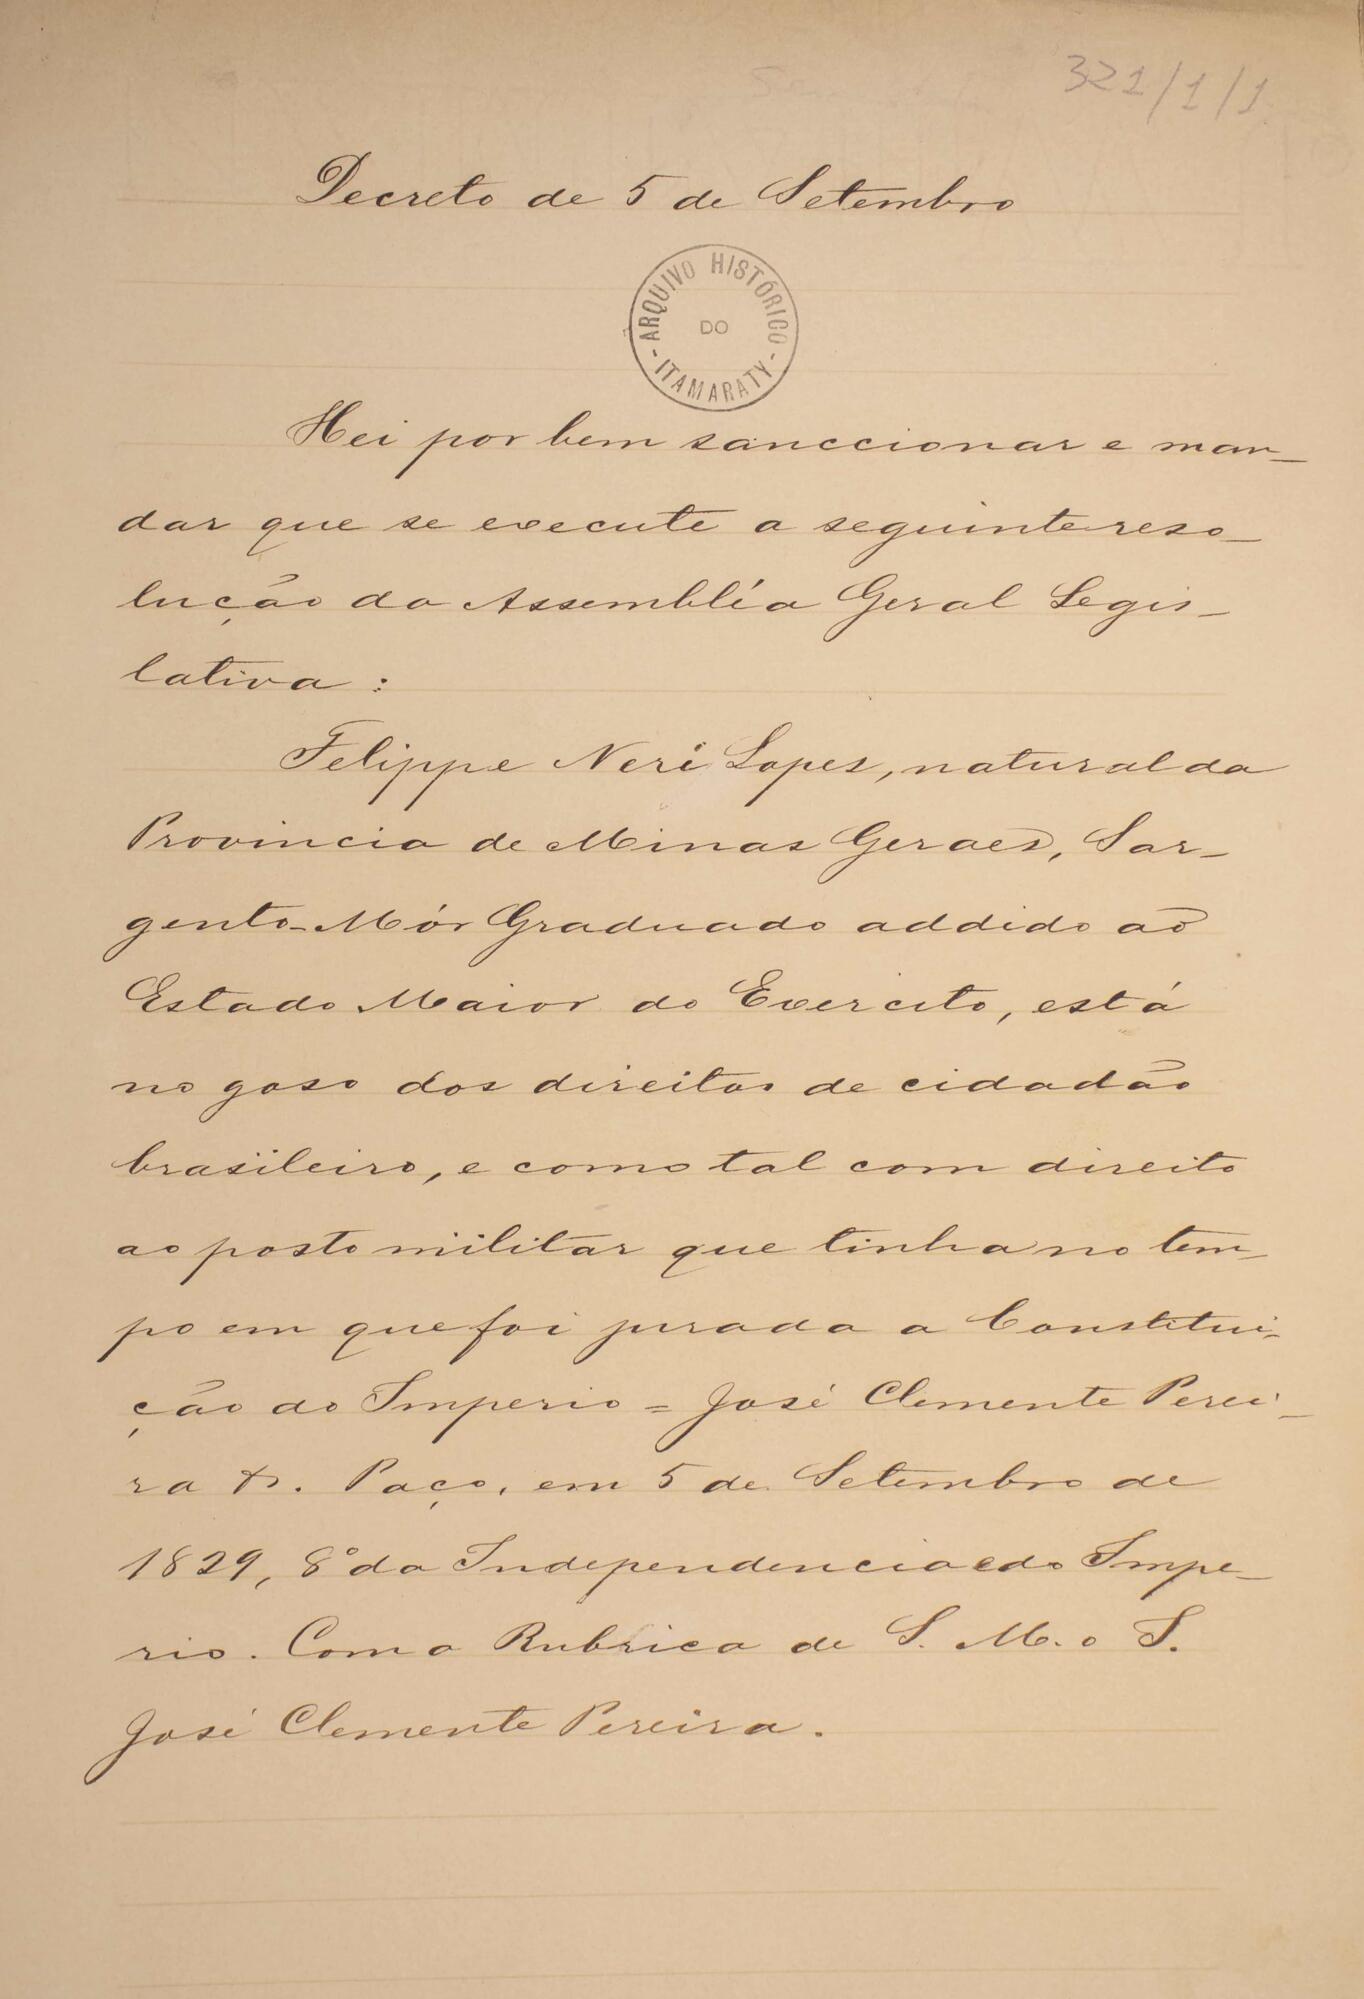 321/1/1
Decreto de 5 de Setembro
ARQUIVO HISTÓRICO
DO
- ITAMARATY -
Hei por bem sanccionar e man-
dar que se execute a seguinte reso-
lução da Assembléa Geral Legis-
lativa :
Felippe Neri Lopes, natural da
Provincia de Minas Geraes, Sar-
gento-Mór Graduado addido ao
Estado Maior do Exercito, está
no goso dos direitos de cidadão
brasileiro, e como tal com direito
ao posto militar que tinha no tem-
po em que foi jurada a Constitui-
ção do Imperio = José Clemente Perei-
ra &. Paço, em 5 de Setembro de
1829, 8º da Independencia e do Impe-
rio. Com a Rubrica de S. M. o I.
José Clemente Pereira.